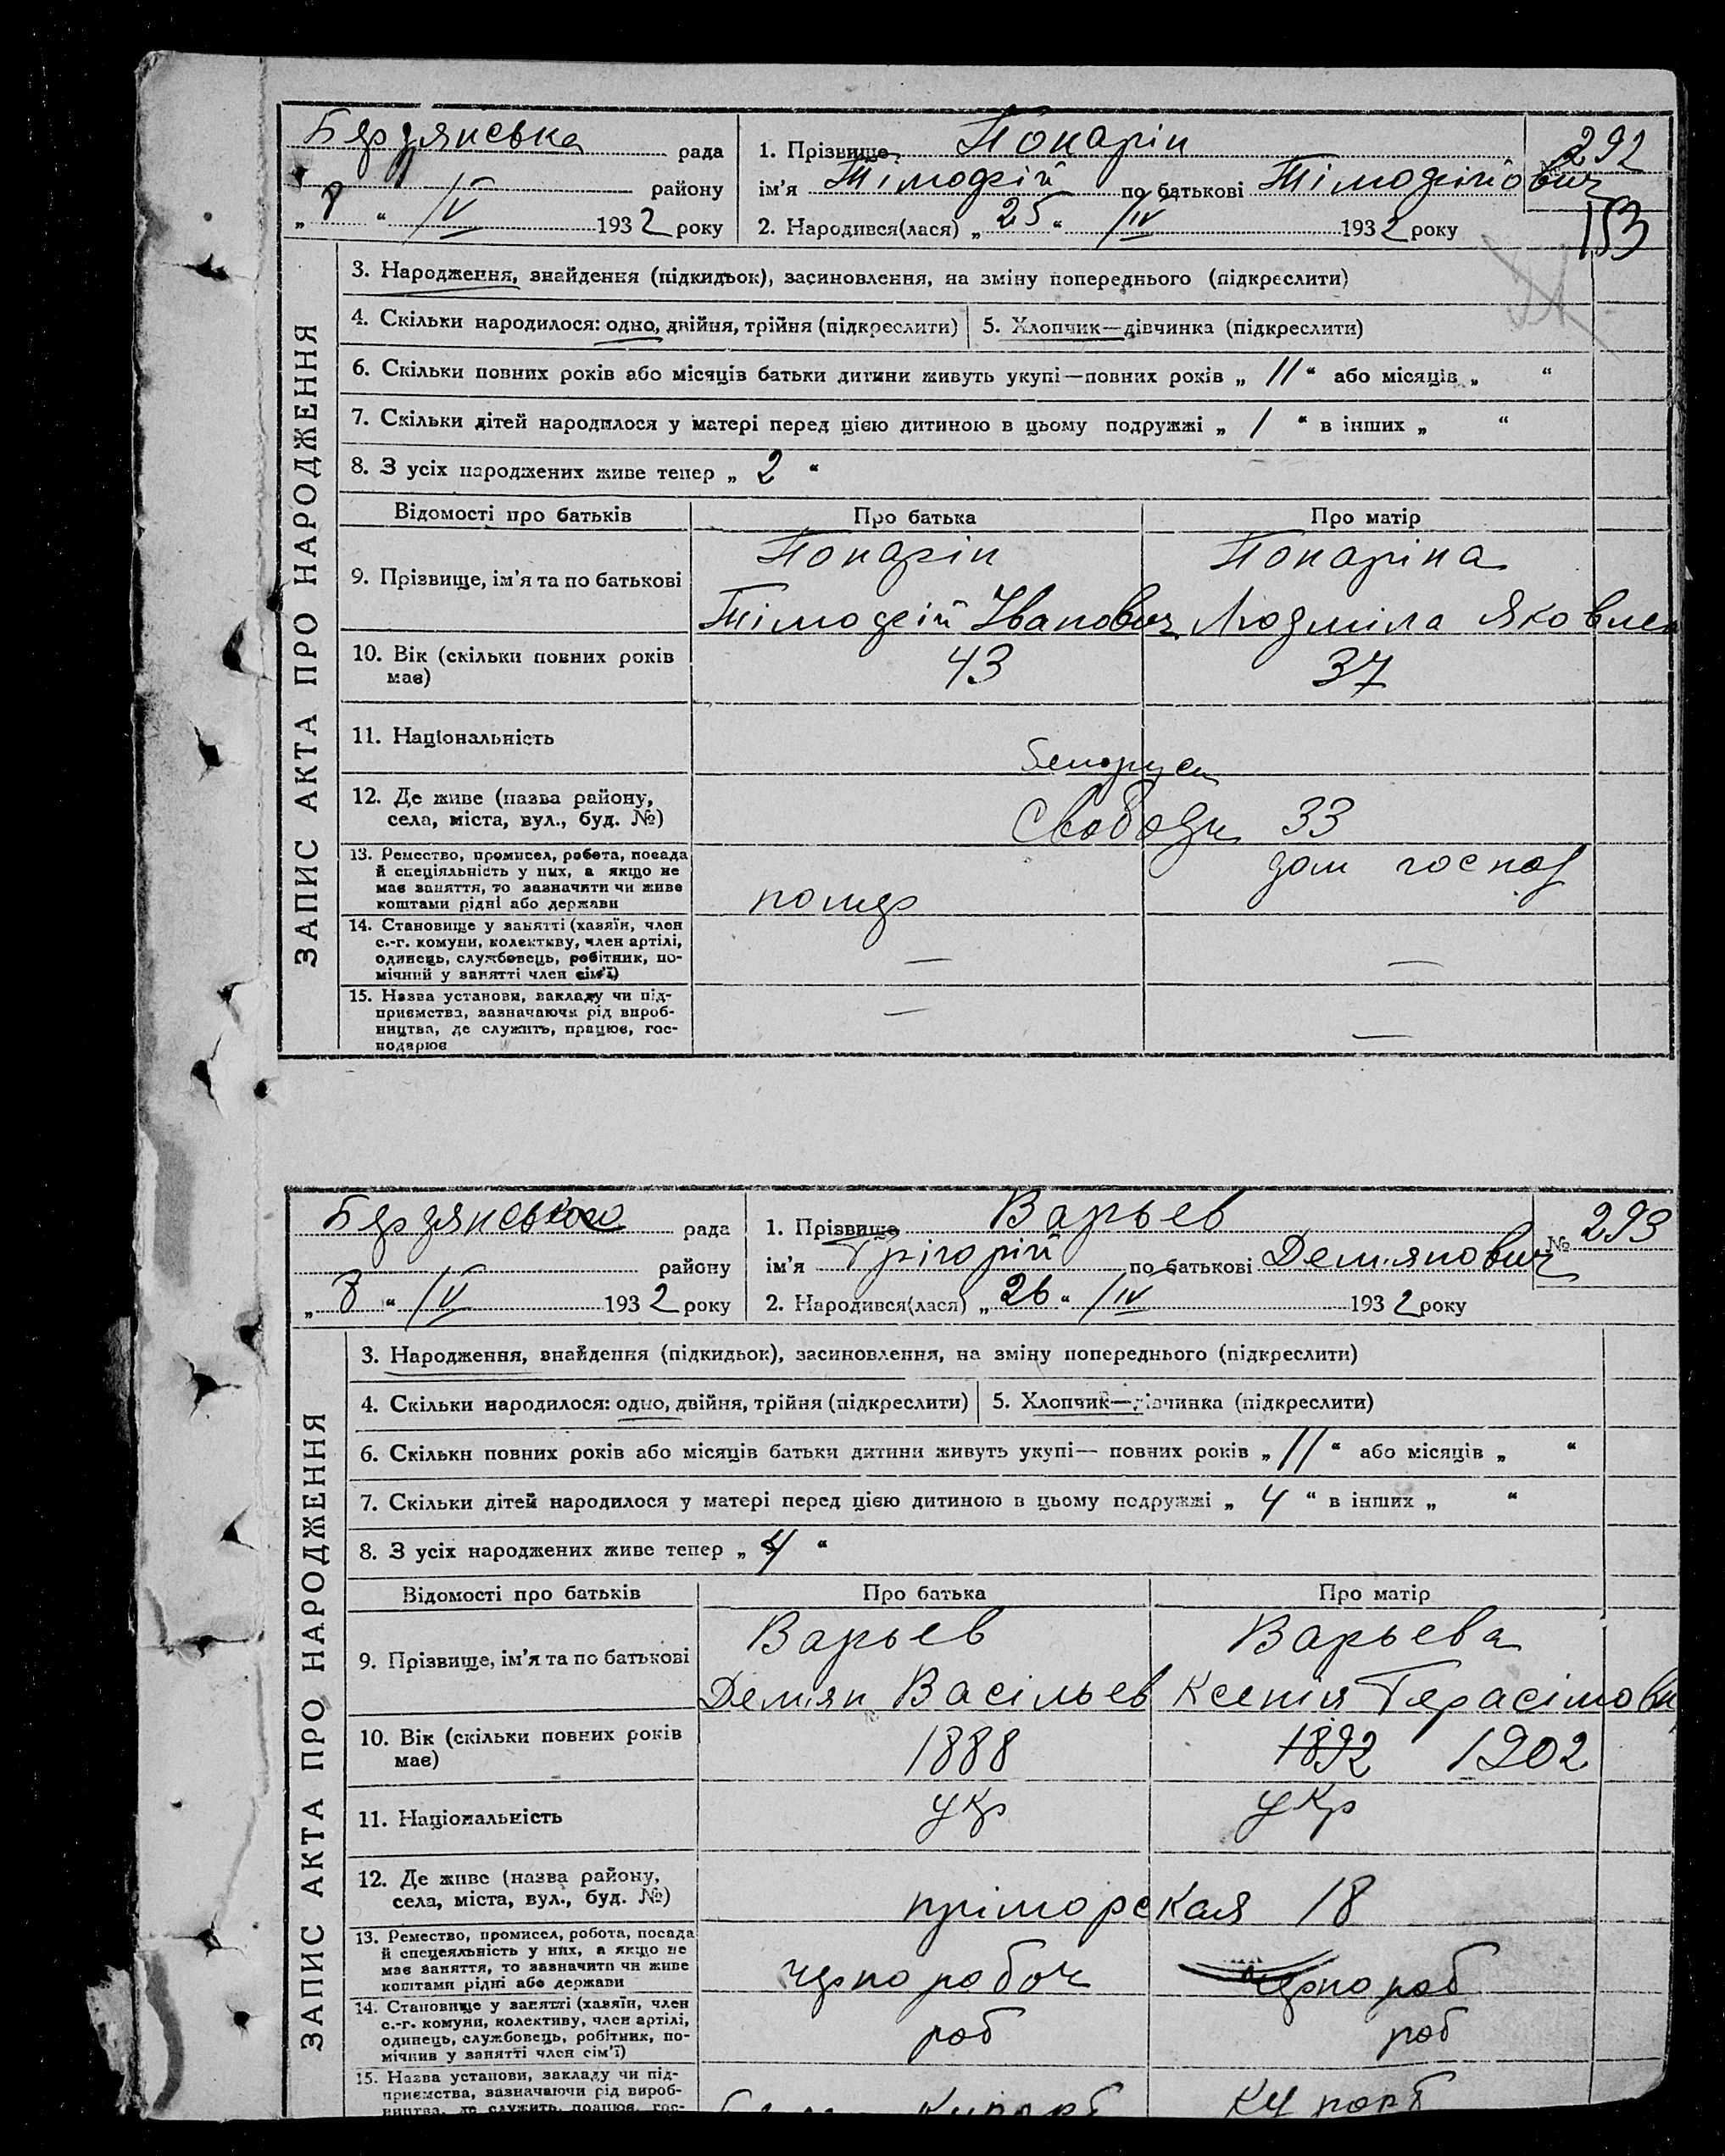 Бердянська рада
району
„ 8 “ IV 1932 року
1. Прізвище Понарін
ім'я Тімофій по батькові Тімофійович
2. Народився(лася) „ 25 “ IV 1932 року
292
153
ЗАПИС АКТА ПРО НАРОДЖЕННЯ
3. Народження, знайдення (підкидьок), засиновлення, на зміну попереднього (підкреслити)
4. Скільки народилося: одно, двійня, трійня (підкреслити) 5. Хлопчик—дівчинка (підкреслити)
6. Скільки повних років або місяців батьки дитини живуть укупі—повних років „ 11 “ або місяців „ “
7. Скільки дітей народилося у матері перед цією дитиною в цьому подружжі „ 1 “ в інших „ “
8. З усіх народжених живе тепер „ 2 “
Відомості про батьків Про батька Про матір
9. Прізвище, ім'я та по батькові
Понарін Понаріна
Тімофій Іванович Людміла Яковлев
10. Вік (скільки повних років
має)
43 37
11. Національність
белорусы
12. Де живе (назва району,
села, міста, вул., буд. №)
Свободы 33
13. Ремество, промисел, робота, посада
й спеціяльність у них, а якщо не
має заняття, то зазначити чи живе
коштами рідні або держави
помер дом господ
14. Становище у занятті (хазяїн, член
с.-г. комуни, колективу, член артілі,
одинець, службовець, робітник, по-
мічний у занятті член сім'ї)
— —
15. Назва установи, закладу чи під-
приємства, зазначаючи рід вироб-
ництва, де служить, працює, гос-
подарює
— —
Бердянського рада
району
„ 8 “ IV 1932 року
1. Прізвище Варьев
ім'я Грігорій по батькові Демянович
2. Народився(лася) „ 26 “ IV 1932 року
№ 293
ЗАПИС АКТА ПРО НАРОДЖЕННЯ
3. Народження, знайдення (підкидьок), засиновлення, на зміну попереднього (підкреслити)
4. Скільки народилося: одно, двійня, трійня (підкреслити) 5. Хлопчик—дівчинка (підкреслити)
6. Скільки повних років або місяців батьки дитини живуть укупі— повних років „ 11 “ або місяців „ “
7. Скільки дітей народилося у матері перед цією дитиною в цьому подружжі „ 4 “ в інших „ “
8. З усіх народжених живе тепер „ 4 “
Відомості про батьків Про батька Про матір
9. Прізвище, ім'я та по батькові
Варьев Варьева
Демян Васільев Ксенія Герасімовн
10. Вік (скільки повних років
має)
1888 1892 1902
11. Національність
укр укр
12. Де живе (назва району,
села, міста, вул., буд. №)
пріморская 18
13. Ремество, промисел, робота, посада
й спецеяльність у них, а якщо не
має заняття, то зазначити чи живе
коштами рідні або держави
чернорабоч чернораб
14. Становище у занятті (хазяїн, член
с.-г. комуни, колективу, член артілі,
одинець, службовець, робітник, по-
мічнив у занятті член сім'ї)
роб роб
15. Назва установи, закладу чи під-
приємства, зазначаючи рід вироб-
ництва, де служить, працює, гос-